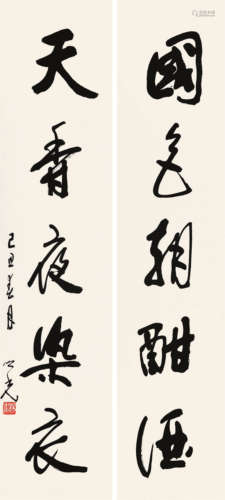 國色朝酣酒
天香夜染衣
己丑春月